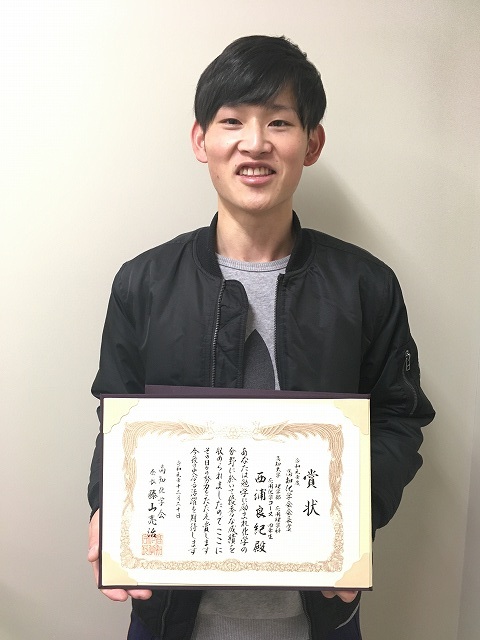 賞状
令和元年度
高知化学会会長賞
高知大学 理学部 応用理学科
応用化学コース 四年生
西浦良紀殿
あなたは勉学に励まれ化学の
分野に於いて優秀な成績を
収められましたのでここに
その日々の努力をたたえ賞します
今後の更なる活躍を期待します
令和元年十二月二十日
高知化学会
会長 藤山亮治